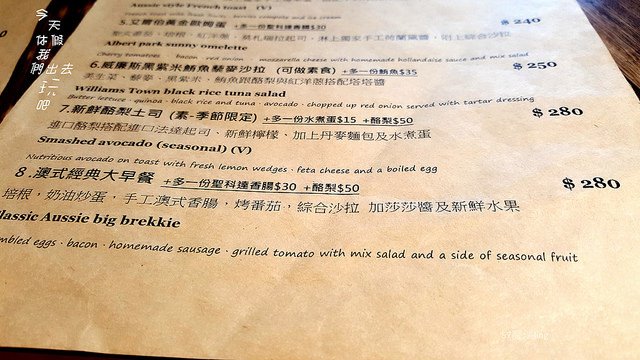 今天假
休我們出去
玩吧
Aussie style French toast (V)
$ 240
5.艾爾伯黃金歐姆蛋 +多一份聖科達香腸$30
Albert park sunny omelette
Cherry tomatoes · bacon · red onion · mozzarella cheese with homemade hollandaise sauce and mix salad
6.威廉斯黑紫米鮪魚藜麥沙拉 (可做素食) +多一份鮪魚$35
$ 250
美生菜、藜麥、黑紫米、鮪魚跟酪梨與紅洋蔥搭配塔塔醬
Williams Town black rice tuna salad
Butter lettuce · quinoa · black rice and tuna · avocado · chopped up red onion served with tartar dressing
7.新鮮酪梨土司 (素-季節限定) +多一份水煮蛋$15 +酪梨$50
$ 280
進口酪梨搭配進口法達起司、新鮮檸檬、加上丹麥麵包及水煮蛋
Smashed avocado (seasonal) (V)
Nutritious avocado on toast with fresh lemon wedges · feta cheese and a boiled egg
8.澳式經典大早餐 +多一份聖科達香腸$30 +酪梨$50
$ 280
培根，奶油炒蛋，手工澳式香腸，烤番茄，綜合沙拉 加莎莎醬及新鮮水果
lassic Aussie big brekkie
mbled eggs · bacon · homemade sausage · grilled tomato with mix salad and a side of seasonal fruit